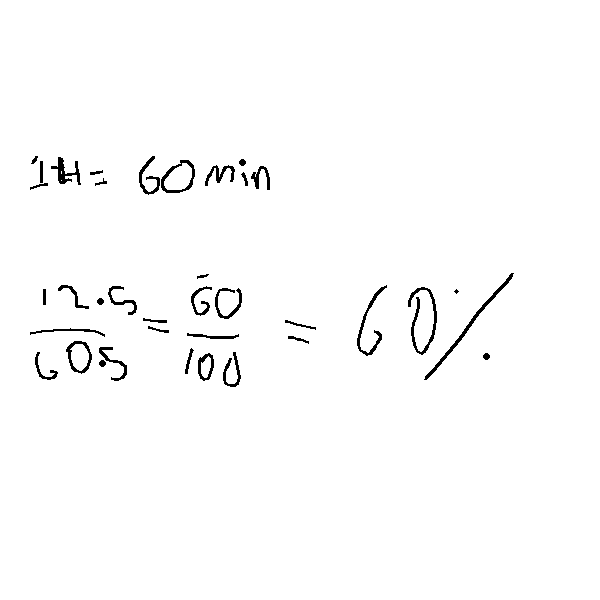 1H= 60min
12.5/60.5 = 60/100 = 60%